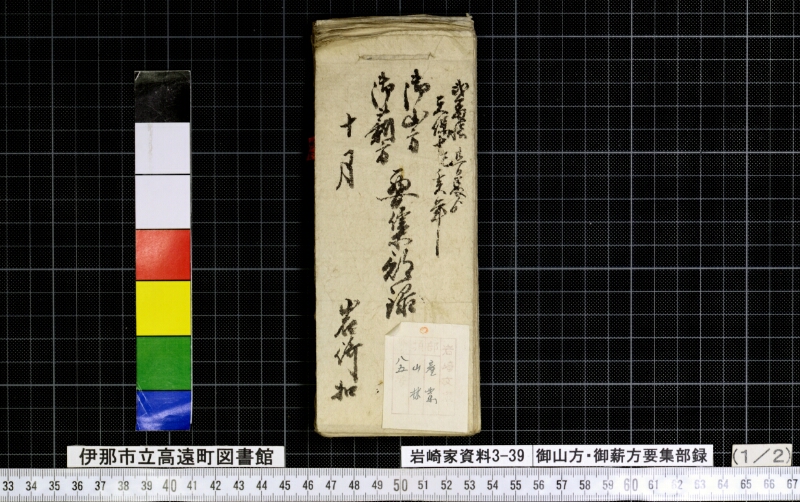 天保十亥年
御山方
御薪方
要集部録
十月
岩崎扣
産業
山林
八五
伊那市立高遠町図書館
岩崎家資料3-39 御山方・御薪方要集部録
(1/2)
33 34 35 36 37 38 39 40 41 42 43 44 45 46 47 48 49 50 51 52 53 54 55 56 57 58 59 60 61 62 63 64 65 66 67